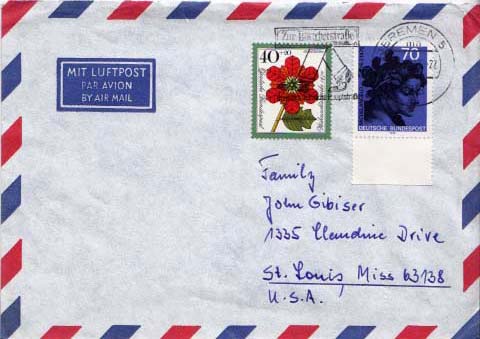 MIT LUFTPOST
PAR AVION
BY AIR MAIL
Zur Böttcherstraße
BREMEN 5
40+20
70
DEUTSCHE BUNDESPOST
Family
John Gibiser
1335 Claudine Drive
St. Louis, Miss 63138
U.S.A.